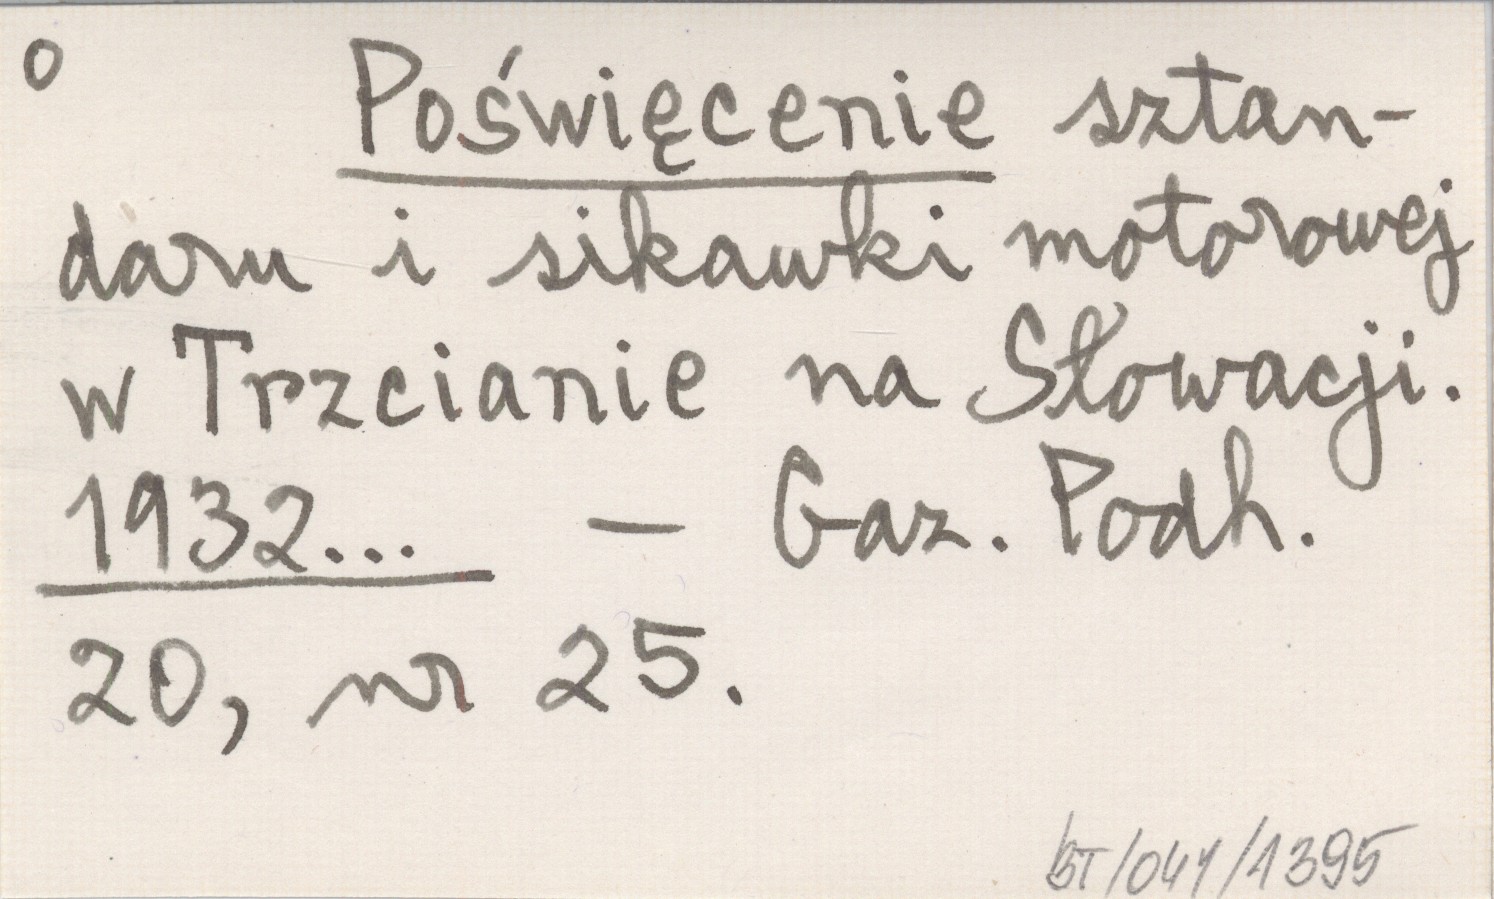 o Poświęcenie sztan-
daru i sikawki motorowej
w Trzcianie na Słowacji.
1932... — Gaz. Podh.
20, nr 25.
/1395